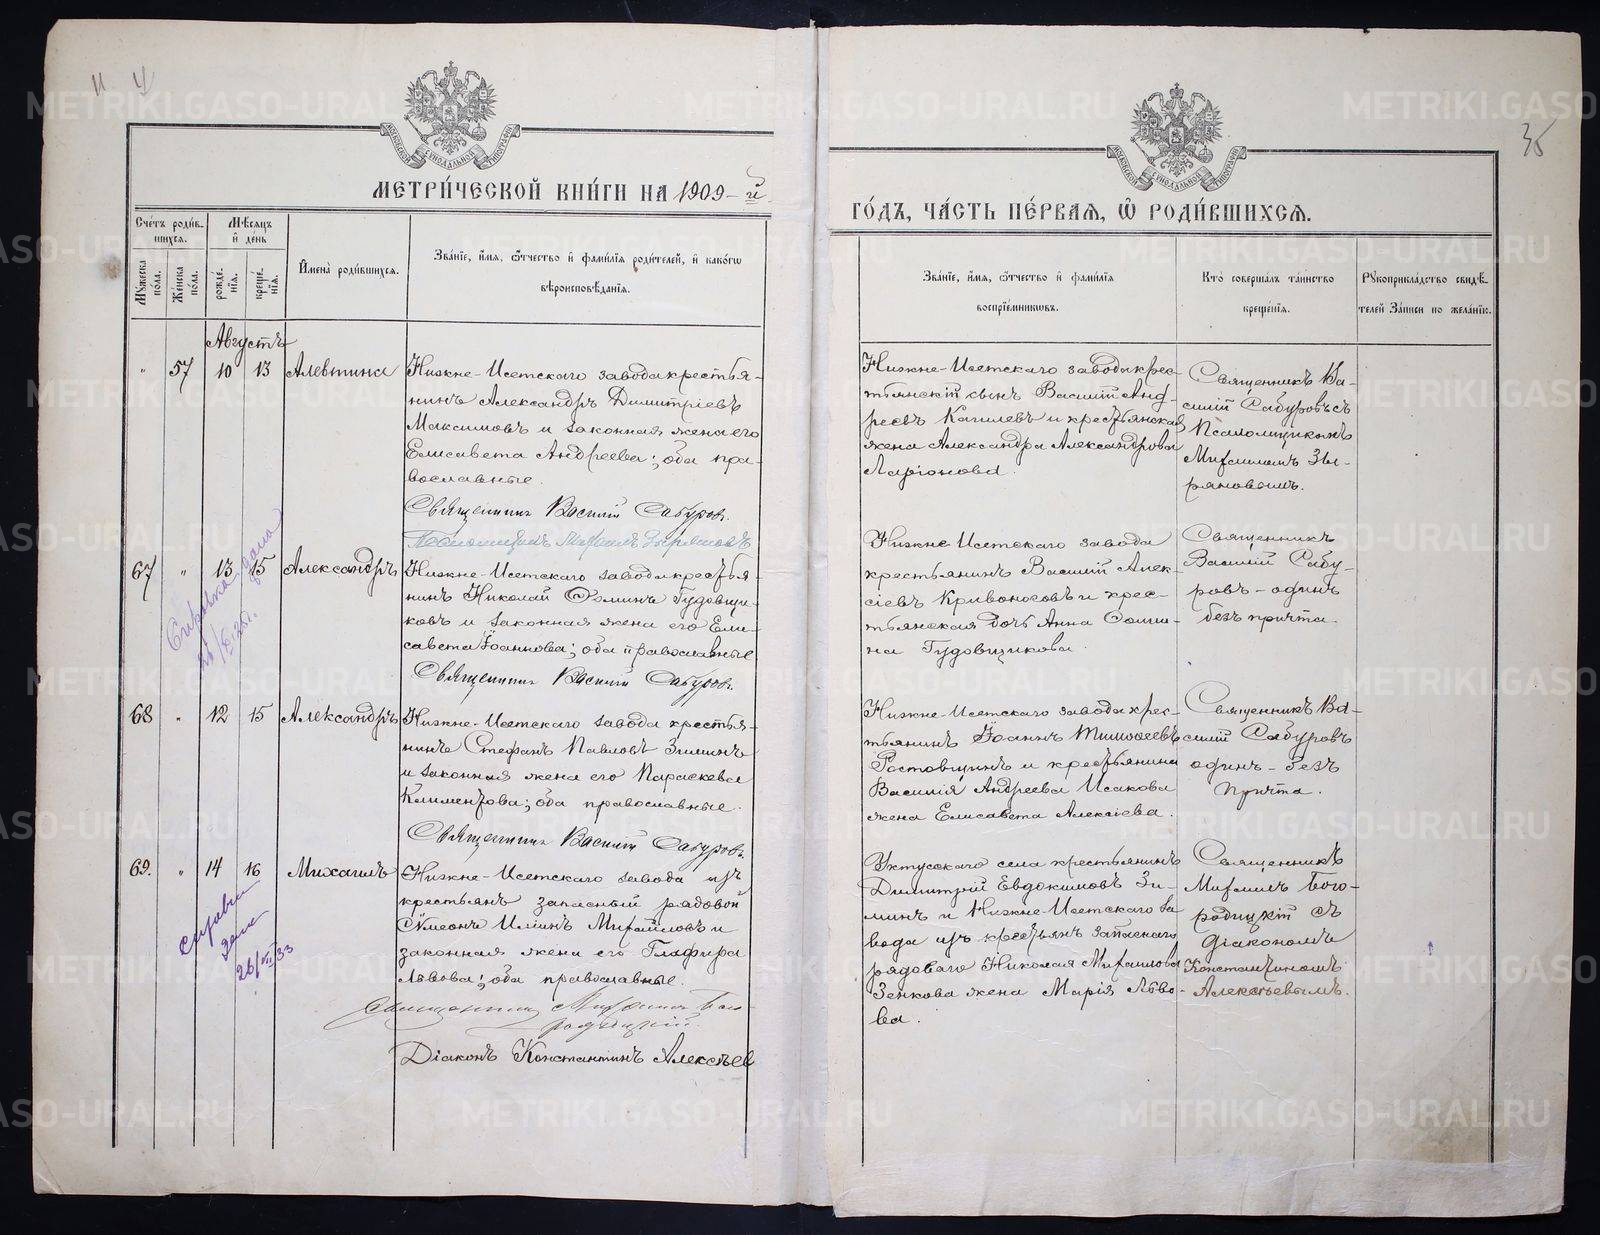 35
МЕТРИ́ЧЕСКОЙ КНИ́ГИ НА 1909-й
ГО́ДЪ, ЧА́СТЬ ПЕ́РВАЯ, Ѿ РОДИ́ВШИХСЯ.
Сче́тъ роди́в-
шихся.
Му́жеска по́ла.
Же́нска по́ла.
Мѣ́сяцъ
и де́нь
рожде́нія.
креще́нія.
Имена̀ роди́вшихся.
Зва́ніе, и́мя, ѻ́тчество и фами́лія роди́телей, и како́гѡ
вѣроисповѣ́данія.
Зва́ніе, и́мя, ѻ́тчество и фами́лія
воспріе́мникѡвъ.
Кто̀ соверша́лъ та́инство
креще́нія.
Рукоприкла́дство свидѣ́-
телей за́писи по жела́нію.
Августъ
" 57 10 13 Алевтина
Нижне-Исетскаго завода крестья-
нинъ Александръ Димитріевъ
Максимовъ и законная жена его
Елисавета Андреева; оба пра-
вославные.
Священникъ Василій Сабуровъ.
Псаломщикъ Михаилъ Зыряновъ
Нижне-Исетскаго завода крес-
тьянскій сынъ Василій Анд-
реевъ Качилевъ и крестьянская
жена Александра Александрова
Ларіонова.
Священникъ Ва-
силій Сабуровъ съ
Псаломщикомъ
Михаиломъ Зы-
ряновымъ.
67 " 13 15 Александръ
Нижне-Исетскаго завода крестья-
нинъ Николай Ѳоминъ Гудовщи-
ковъ и законная жена его Ели-
савета Іоаннова; оба православные
Священникъ Василій Сабуровъ.
Нижне-Исетскаго завода
крестьянинъ Василій Алек-
сіевъ Кривоносовъ и крес-
тьянская дочь Анна Ѳоми-
на Гудовщикова.
Священникъ
Василій Сабу-
ровъ - одинъ
безъ причта.
Справка дана
68 " 12 15 Александръ
Нижне-Исетскаго завода крестья-
нинъ Стефанъ Павловъ Зиминъ
и законная жена его Параскева
Климентова; оба православные.
Священникъ Василій Сабуровъ.
Нижне-Исетскаго завода крес-
тьянинъ Іоаннъ Тимоѳеевъ
Ростовщинъ и крестьянина
Василія Андреева Исакова
жена Елисавета Алексіева.
Священникъ Ва-
силій Сабуровъ
одинъ - безъ
причта.
69. " 14 16 Михаилъ
Нижне-Исетскаго завода изъ
крестьянъ запасный рядовой
Сѵмеонъ Илiинъ Михайловъ и
законная жена его Глафира
Львова; оба православные.
Священникъ Михаилъ Бого-
родицкій.
Діаконъ Константинъ Алексѣев
Уктусскаго села крестьянинъ
Димитрій Евдокимовъ Зи-
минъ и Нижне-Исетскаго за-
вода изъ крестьянъ запаснаго
рядоваго Николая Михаилова
Зенкова жена Марія Льво-
ва.
Священникъ
Михаилъ Бого-
родицкій съ
Діакономъ
Константиномъ
Алексѣевымъ.
справка
дана
26/VII 33
METRIKI.GASO-URAL.RU